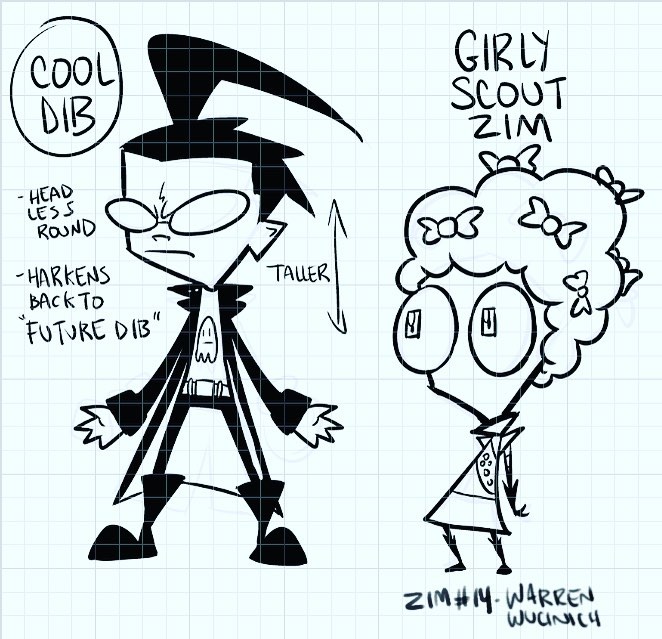 COOL
DIB
- HEAD
LESS
ROUND
- HARKENS
BACK TO
"FUTURE DIB"
TALLER
GIRLY
SCOUT
ZIM
ZIM #14 - WARREN
WUCINICH